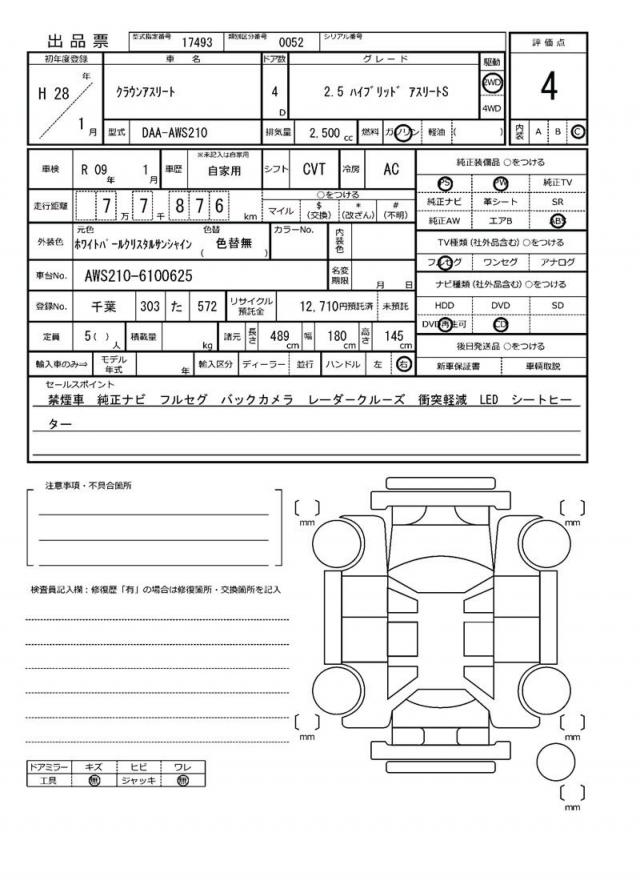 出品票 型式指定番号 17493 類別区分番号 0052 シリアル番号
評価点
4
内装 A B C
初年度登録 車名 ドア数 グレード 駆動
H 28 年 1 月
クラウンアスリート
4 D
2.5 ハイブリッド アスリートS
2WD
4WD
型式 DAA-AWS210 排気量 2,500 cc 燃料 ガソリン 軽油 ( )
車検 R 09 年 1 月 車歴 ※未記入は自家用 自家用 シフト CVT 冷房 AC
走行距離 7 万 7 千 8 7 6 km
○をつける
マイル $(交換) *(改ざん) #(不明)
外装色 元色 色替
ホワイトパールクリスタルサンシャイン ( 色替無 )
カラーNo. 内装色
車台No. AWS210-6100625 名変期限 月 日
登録No. 千葉 303 た 572 リサイクル預託金 12,710円預託済 未預託
定員 5( ) 人 積載量 kg 諸元 長さ 489 cm 幅 180 cm 高さ 145 cm
輸入車のみ⇒ モデル年式 年 輸入区分 ディーラー 並行 ハンドル 左 右
純正装備品 ○をつける
PS PW 純正TV
純正ナビ 革シート SR
純正AW エアB ABS
TV種類(社外品含む)○をつける
フルセグ ワンセグ アナログ
ナビ種類(社外品含む)○をつける
HDD DVD SD
DVD再生可 CD
後日発送品 ○をつける
新車保証書 車輌取説
セールスポイント
禁煙車 純正ナビ フルセグ バックカメラ レーダークルーズ 衝突軽減 LED シートヒー
ター
注意事項・不具合箇所
検査員記入欄：修復歴「有」の場合は修復箇所・交換箇所を記入
ドアミラー キズ ヒビ ワレ
工具 無 ジャッキ 無
mm
mm
mm
mm
mm